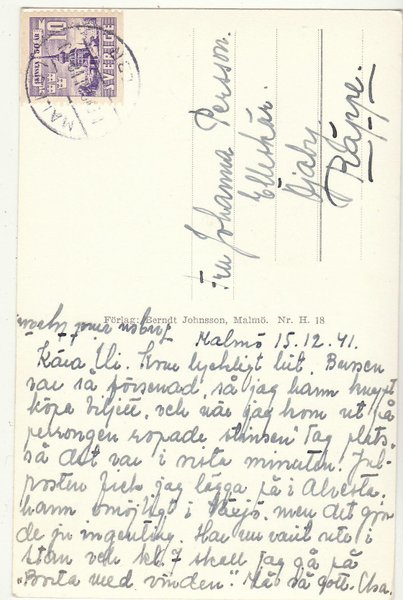 SVERIGE
10
MAL
Fru Johanna Persson.
Ellekär.
Öjaby.
Räppe.
Förlag: Berndt Johnsson, Malmö. Nr. H. 18
Malmö 15.12.41.
Kära Ni. Kom lyckligt hit. Bussen
var så försenad, så jag hann knappt
köpa biljett, och när jag kom ut på
perrongen ropade stinsen "Tag plats,
så det var i sista minuten. Jul-
posten fick jag lägga på i Alvesta,
hann omöjligt i Växjö men det gjor-
de ju ingenting. Har nu varit ute i
stan och kl. 7 skall jag gå på
"Borta med vinden". Så så gott.